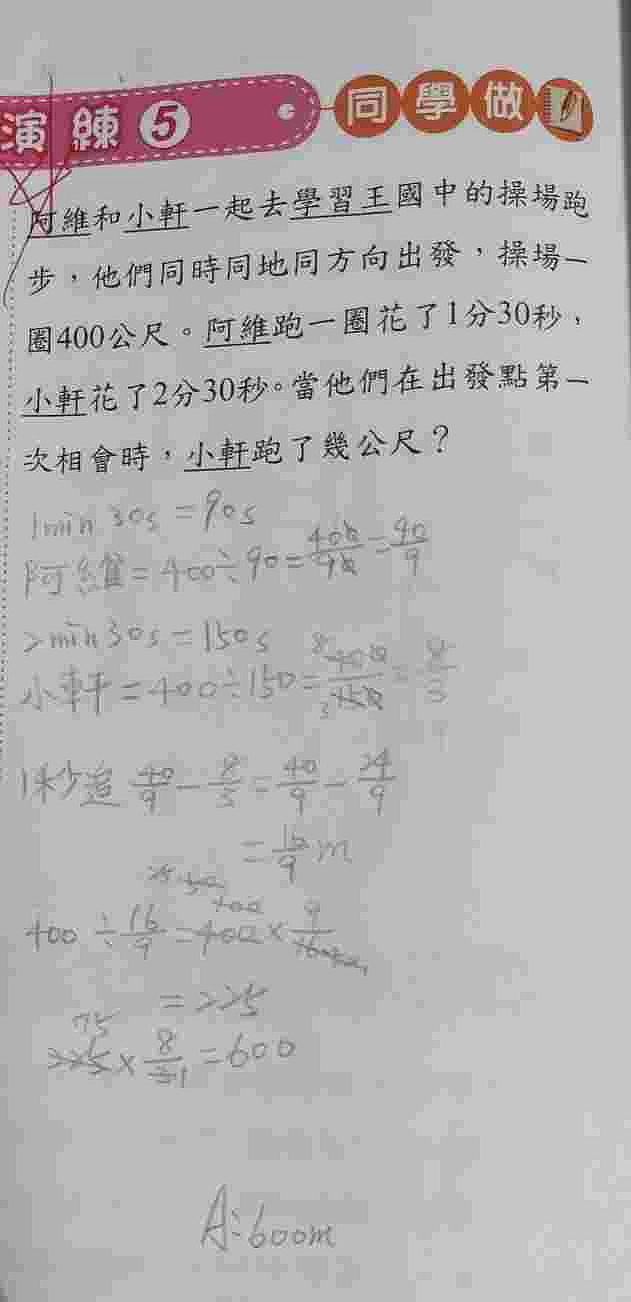 演練5 同學做
阿維和小軒一起去學習王國中的操場跑
步，他們同時同地同方向出發，操場一
圈400公尺。阿維跑一圈花了1分30秒，
小軒花了2分30秒。當他們在出發點第一
次相會時，小軒跑了幾公尺？
1min 30s = 90s
阿維 = 400 ÷ 90 = 400/90 = 40/9
2min 30s = 150s
小軒 = 400 ÷ 150 = 8 400/3 150 = 8/3
1秒追 40/9 - 8/3 = 40/9 - 24/9
= 16/9 m
400 ÷ 16/9 = 400 × 9/16
= 225
75
225 × 8/3 1 = 600
A: 600m